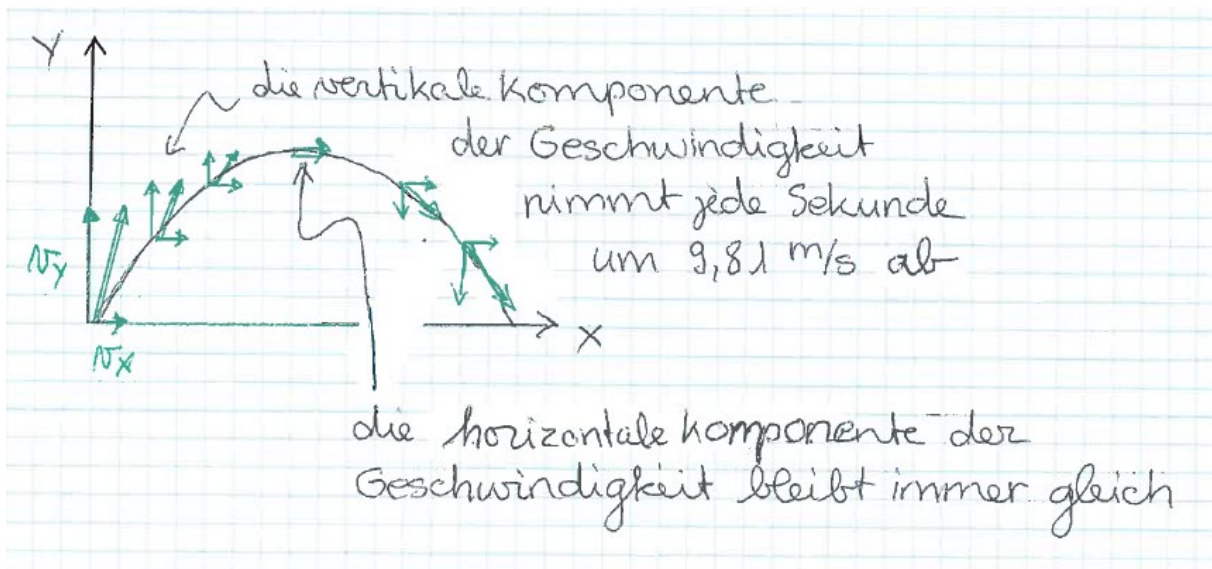 Y
die vertikale Komponente
der Geschwindigkeit
nimmt jede Sekunde
um 9,81 m/s ab
vy
X
vx
die horizontale Komponente der
Geschwindigkeit bleibt immer gleich